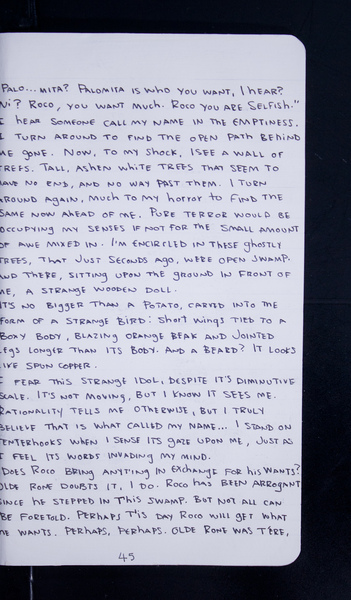 PALO...MITA? PALOMITA IS WHO YOU WANT, I HEAR?
NI? ROCO, YOU WANT MUCH. ROCO YOU ARE SELFISH."
I HEAR SOMEONE CALL MY NAME IN THE EMPTINESS.
I TURN AROUND TO FIND THE OPEN PATH BEHIND
ME GONE. NOW, TO MY SHOCK, I SEE A WALL OF
TREES. TALL, ASHEN WHITE TREES THAT SEEM TO
HAVE NO END, AND NO WAY PAST THEM. I TURN
AROUND AGAIN, MUCH TO MY HORROR TO FIND THE
SAME NOW AHEAD OF ME. PURE TERROR WOULD BE
OCCUPYING MY SENSES IF NOT FOR THE SMALL AMOUNT
OF AWE MIXED IN. I'M ENCIRCLED IN THESE GHOSTLY
TREES, THAT JUST SECONDS AGO, WERE OPEN SWAMP.
AND THERE, SITTING UPON THE GROUND IN FRONT OF
ME, A STRANGE WOODEN DOLL.
IT'S NO BIGGER THAN A POTATO, CARVED INTO THE
FORM OF A STRANGE BIRD: SHORT WINGS TIED TO A
BOXY BODY, BLAZING ORANGE BEAK AND JOINTED
LEGS LONGER THAN ITS BODY. AND A BEARD? IT LOOKS
LIKE SPUN COPPER.
I FEAR THIS STRANGE IDOL, DESPITE IT'S DIMINUTIVE
SCALE. IT'S NOT MOVING, BUT I KNOW IT SEES ME.
RATIONALITY TELLS ME OTHERWISE, BUT I TRULY
BELIEVE THAT IS WHAT CALLED MY NAME... I STAND ON
TENTERHOOKS WHEN I SENSE ITS GAZE UPON ME, JUST AS
I FEEL ITS WORDS INVADING MY MIND.
"DOES ROCO BRING ANYT'ING IN EXCHANGE FOR HIS WANTS?
OLDE RONE DOUBTS IT, I DO. ROCO HAS BEEN ARROGANT
SINCE HE STEPPED IN THIS SWAMP. BUT NOT ALL CAN
BE FORETOLD. PERHAPS T'IS DAY ROCO WILL GET WHAT
HE WANTS. PERHAPS, PERHAPS. OLDE RONE WAS T'ERE,
45